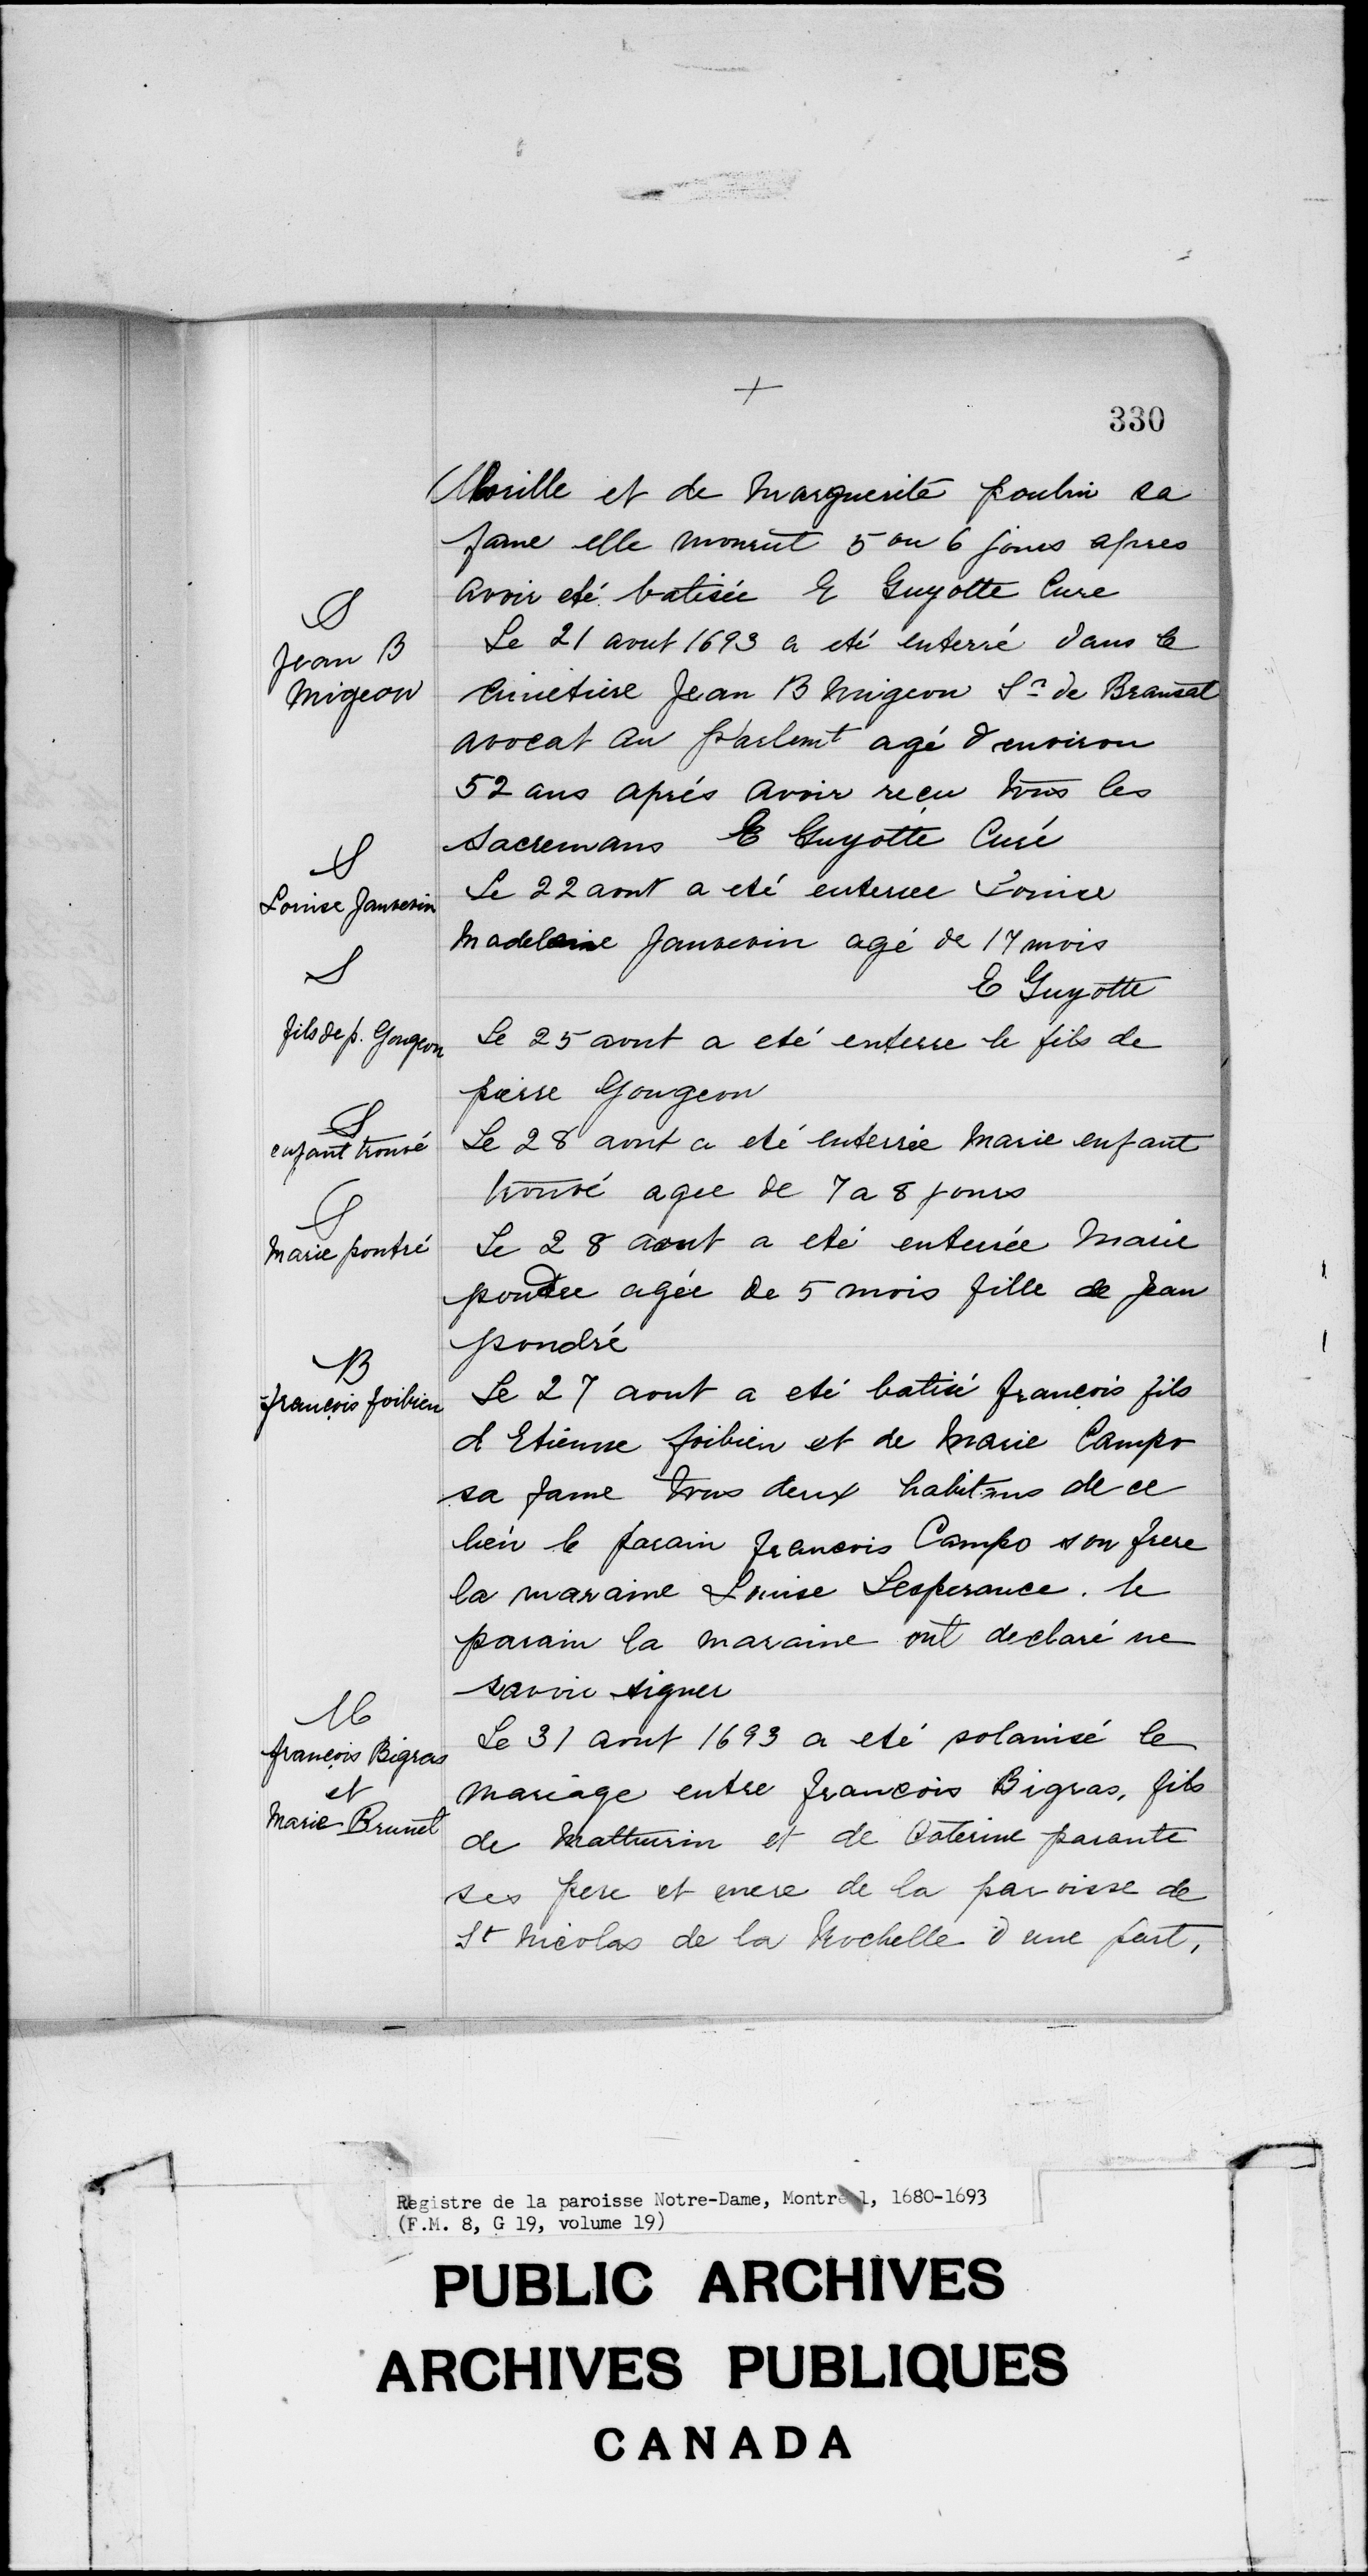 +
330
Morille et de Marguerite poulin sa
fame elle mourut 5 ou 6 jours apres
avoir eté batisée E Guyotte Cure
S
Jean B
Migeon
Le 21 aout 1693 a eté enterré dans le
Cimetiere Jean B Migeon Sr de Bransat
avocat au parlemt agé d environ
52 ans aprés avoir reçu tous les
sacremans E Guyotte Curé
S
Louise Janvevin
Le 22 aout a eté enterree Louise
Madeleine Janvevin agé de 17 mois
E Guyotte
S
fils de p. Gougeon
Le 25 aout a eté enterre le fils de
pierre Gougeon
S
enfant trouvé
Le 28 aout a eté enterrée Marie enfant
trouvé agee de 7 a 8 jours
S
Marie poutré
Le 28 aout a eté enterrée Marie
poudre agée de 5 mois fille de Jean
poudré
B
françois foibien
Le 27 aout a eté batisé françois fils
d Etienne foibien et de Marie Campo
sa fame tous deux habitans de ce
lieu le parain francois Campo son frere
la maraine Louise Lesperance. le
parain la maraine ont declaré ne
savoir signer
M
françois Bigras
et
Marie Brunet
Le 31 aout 1693 a eté solanisé le
mariage entre françois Bigras, fils
de Matturin et de Caterine parante
ses pere et mere de la paroisse de
St Nicolas de la Rochelle d une part,
Registre de la paroisse Notre-Dame, Montréal, 1680-1693
(F.M. 8, G 19, volume 19)
PUBLIC ARCHIVES
ARCHIVES PUBLIQUES
CANADA